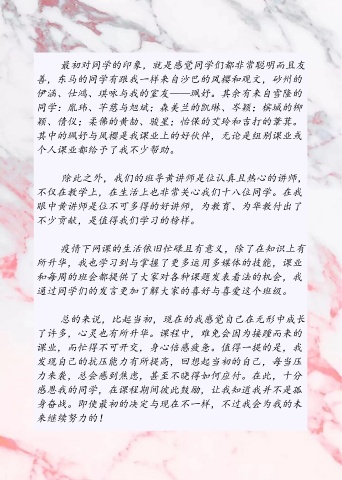 最初对同学的印象，就是感觉同学们都非常聪明而且友
善，东马的同学有跟我一样来自沙巴的凤樱和观文，砂州的
伊涵、仕鸿、琪咏与我的室友——珮妤。其余有来自雪隆的
同学：胤玮、芊慈与旭斌；森美兰的凯琳、岑颖；槟城的柳
颖、倩仪；柔佛的黄勄、骏星；怡保的艾玲和吉打的萧萁。
其中的珮妤与凤樱是我课业上的好伙伴，无论是组别课业或
个人课业都给予了我不少帮助。
除此之外，我们的班导黄讲师是位认真且热心的讲师，
不仅在教学上，在生活上也非常关心我们十八位同学。在我
眼中黄讲师是位不可多得的好讲师，为教育、为华教付出了
不少贡献，是值得我们学习的榜样。
疫情下网课的生活依旧忙碌且有意义，除了在知识上有
所升华，我也学习到与掌握了更多运用多媒体的技能，课业
和每周的班会都提供了大家对各种课题发表看法的机会，我
通过同学们的发言更加了解大家的喜好与喜爱这个班级。
总的来说，比起当初，现在的我感觉自己在无形中成长
了许多，心灵也有所升华。课程中，难免会因为接踵而来的
课业，而忙得不可开交，身心倍感疲惫。值得一提的是，我
发现自己的抗压能力有所提高，回想起当初的自己，每当压
力来袭，总会感到焦虑，甚至不晓得如何应付。在此，十分
感恩我的同学，在课程期间彼此鼓励，让我知道我并不是孤
身奋战。即使最初的决定与现在不一样，不过我会为我的未
来继续努力的！